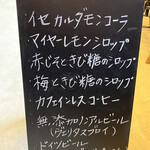 イセ カルダモンコーラ
マイヤーレモンシロップ
赤じそときび糖のシロップ
梅ときび糖のシロップ
カフェインレスコーヒー
無添加ノンアルビール
(ヴェリタスブロイ)
ドイツビール